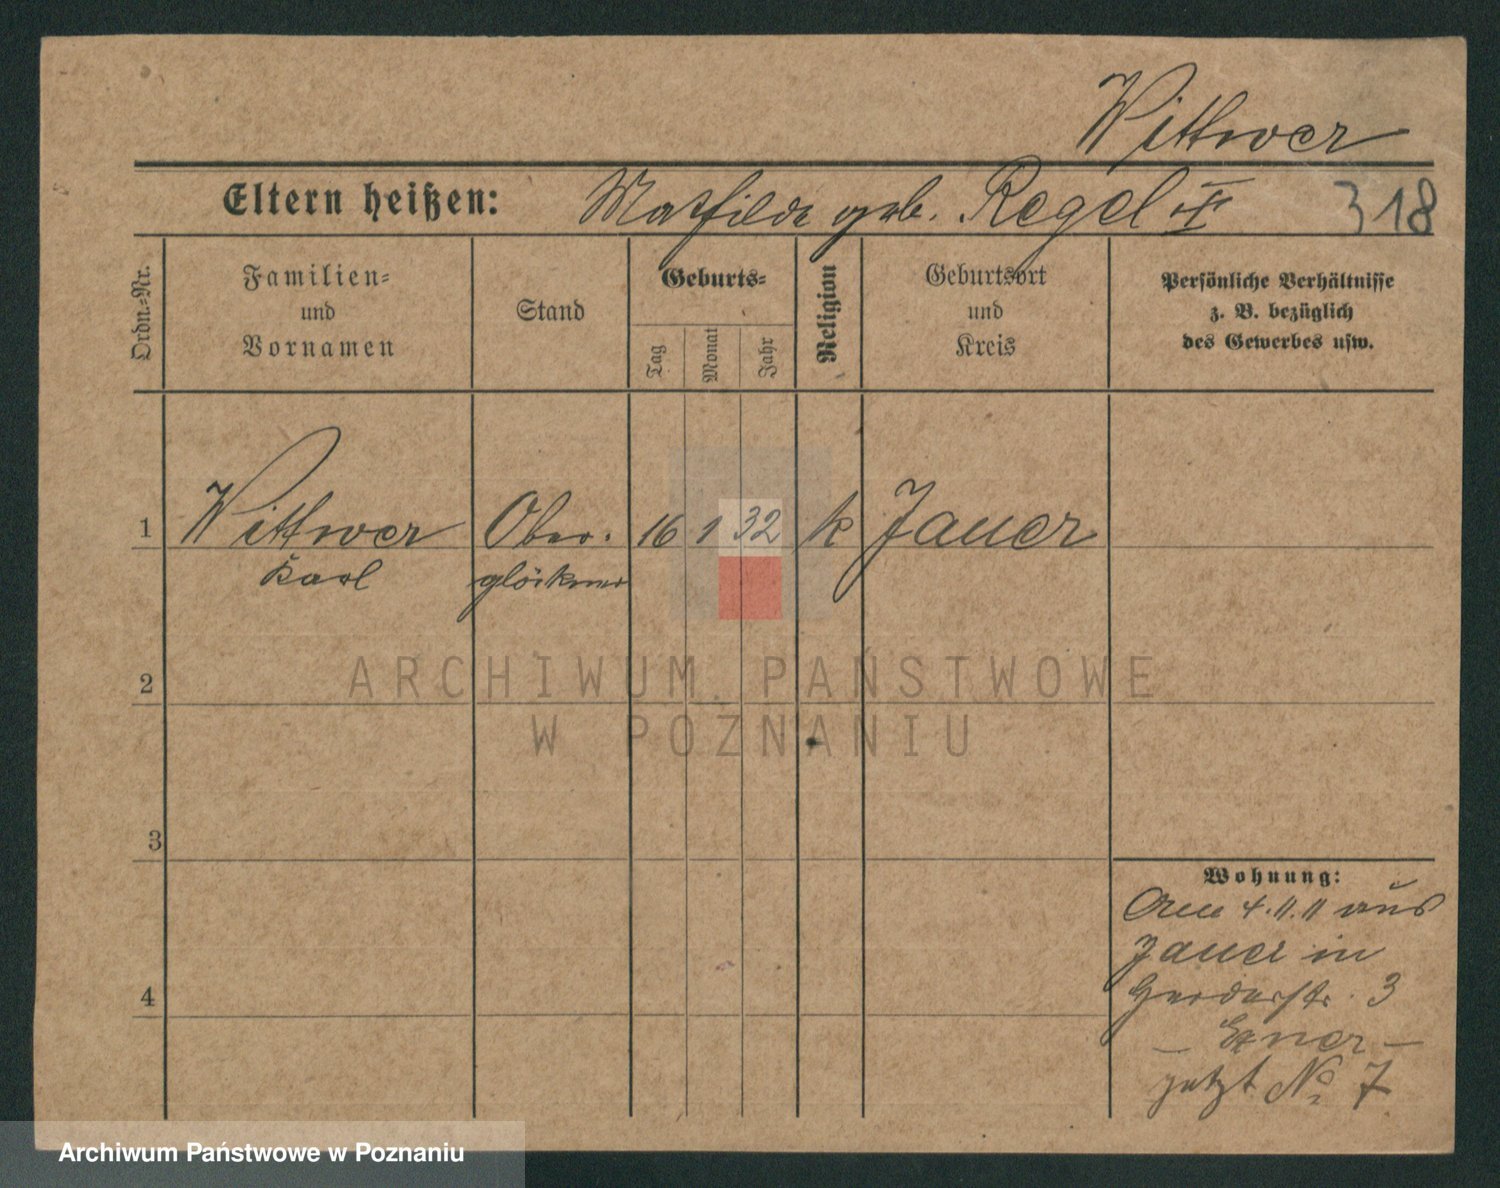 Wittwer
Eltern heißen: Mathilde geb. Regel 318
Ordn.-Nr.
Familien-
und
Vornamen
Stand
Geburts-
Tag
Monat
Jahr
Religion
Geburtsort
und
Kreis
Persönliche Verhältnisse
z. B. bezüglich
des Gewerbes usw.
1 Wittwer Ober- 16 1 32 k Jauer
Karl glöckner
2
3
4
Wohnung:
Am 4.11.11 aus
Jauer in
Herderstr. 3
jetzt No 7
ARCHIWUM PAŃSTWOWE
W POZNANIU
Archiwum Państwowe w Poznaniu